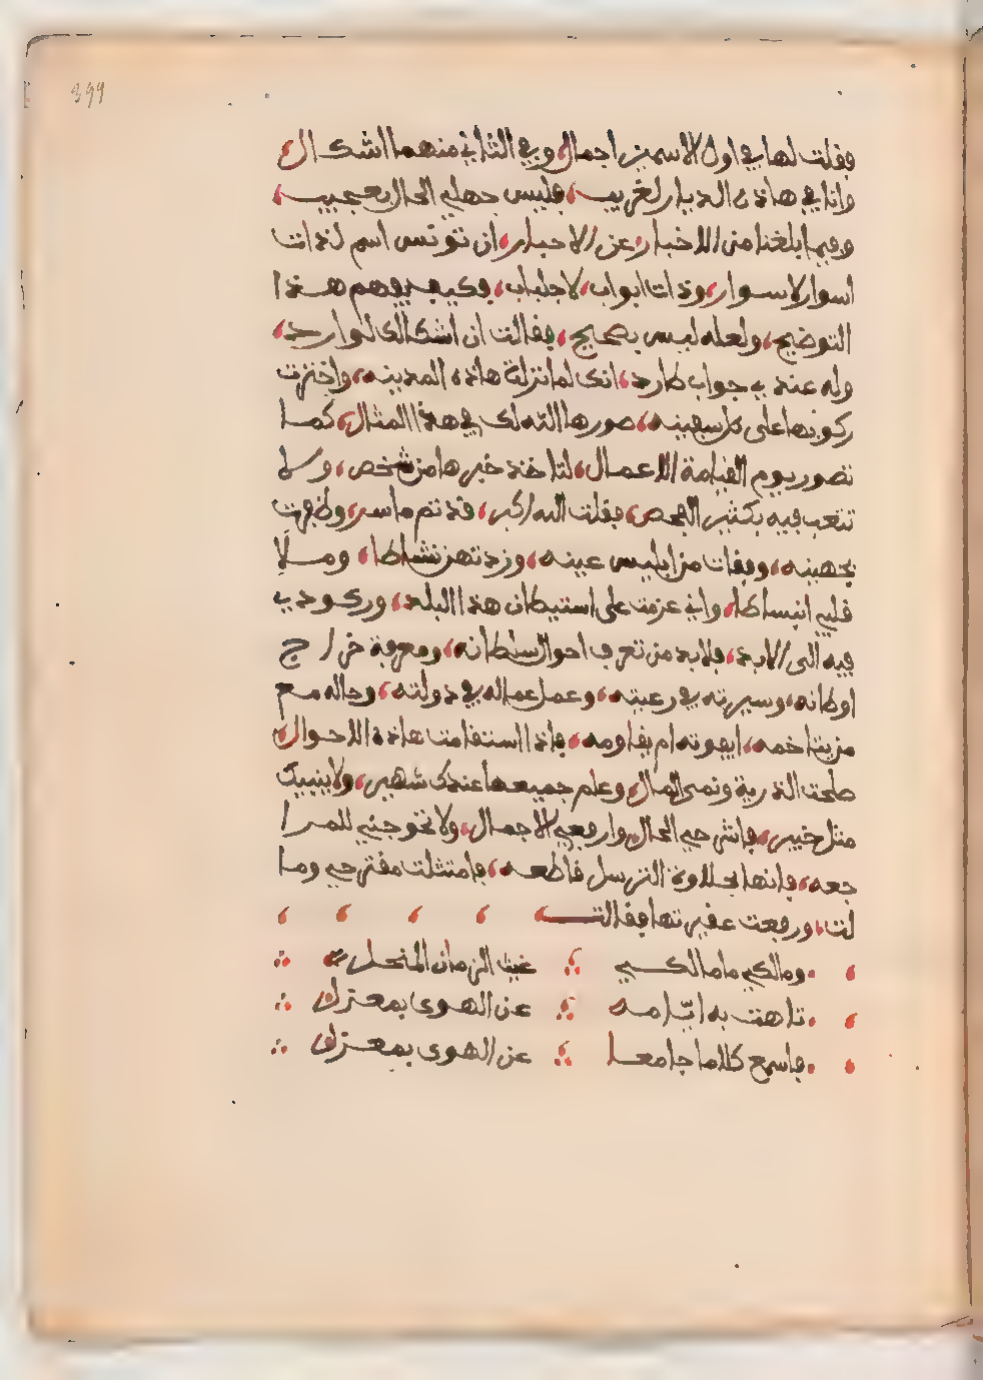 399
فقلت لها في اول الاسمين اجمال، وفي الثاني منهما اشكال،
وانا في هاذه الديار لغريب، فليس جهلي الحال بعجيب،
وفيما بلغنا من الاخبار، عن الاحبار، ان تونس اسم لذات
اسوار لا سوار، وذات ابواب، لا جلباب، فكيف يفهم هذا
التوضيح، ولعله ليس بصحيح، فقالت ان اشكالك لوارد،
وله عندي جواب طارد، انك لما نزلت هاذه المدينه، واخترت
ركوبها على كل سفينه، صورها الله لك في هذا المثال، كما
تصور يوم القيامة الاعمال، لتاخذ خبرها من شخص، ولا
تتعب فيه بكثير الفحص، فقلت الله اكبر، قد تم ما سر، وظفرت
بجهينه، وفقات من ابليس عينه، وزدتهن نشاطا، وملا
قلبي انبساطا، واني عزمت على استيطان هذا البلد، وركودي
فيه الى الابد، فلابد من تعرف احوال سلطانه، ومعرفة خراج
اوطانه، وسيرته في رعيته، وعمل عماله في دولته، وحاله مع
من يتاخمه، ايفوته ام يقاومه، فاذا استقامت هاذه الاحوال،
صلحت الذرية ونمى المال، وعلم جميعها عندك شهير، ولا ينبيك
مثل خبير، فاشرحي الحال، وارفعي الاجمال، ولا تحوجني للمرا
جعه، فانها لحلاوة الترسل قاطعه، فامتثلت مقترحي وما
لت، ورفعت عقيرتها فقالت
ومالكي مامالكي غيث الزمان المنحل
تاهت به ايّامه عن الهوى بمعزل
فاسمع كلاما جامعا عن الهوى بمعزل